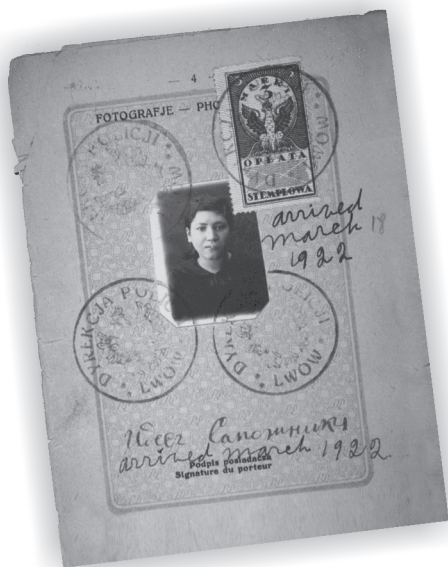 — 4
FOTOGRAFJE — PHO
POLICJI
OPŁATA
STEMPLOWA
arrived
march 18
1922
DYREKCJA PO
LWÓW
LICJI
LWÓW
arrived march 1922.
Podpis posiadacza
Signature du porteur